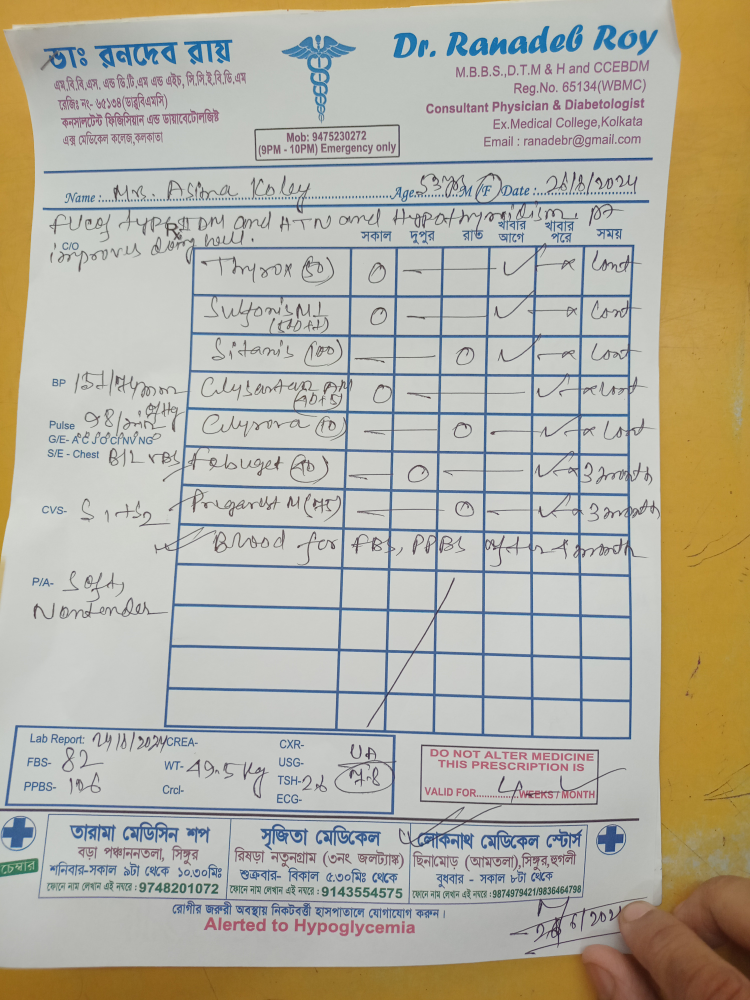 ডাঃ রনদেব রায়
এম,বি,বি,এস, এন্ড ডি,টি,এম এন্ড এইচ, সি,সি,ই,বি,ডি,এম
রেজিঃ নং- ৬৫১৩৪(ডাব্লুবিএমসি)
কনসালটেন্ট ফিজিসিয়ান এন্ড ডায়াবেটোলজিষ্ট
এক্স মেডিকেল কলেজ,কলকাতা
Mob: 9475230272
(9PM - 10PM) Emergency only
Dr. Ranadeb Roy
M.B.B.S.,D.T.M & H and CCEBDM
Reg.No. 65134(WBMC)
Consultant Physician & Diabetologist
Ex.Medical College,Kolkata
Email : ranadebr@gmail.com
Name : Mrs. Asima Koley Age: 53 yrs M/F Date : 28/6/2024
F/UC of type II DM and HTN and Hypothyroidism. pt
improves doing well.
Rx
C/O
সকাল দুপুর রাত খাবার আগে খাবার পরে সময়
Thyrox (50) Cont
Sulfonis M1 (500+1) Cont
Sitanis (100) Cont
BP 151/74 mm of Hg
Cilysartan AM (40+5) Cont
Pulse 98/min
Cilyrova (10) Cont
G/E- A C J O C I N V N G
S/E - Chest B/L VBS
Febuget (40) 3 month
CVS- S1 + S2
Pregarest M (75) 3 month
Blood for FBS, PPBS after 4 month
P/A- Soft,
Nontender
Lab Report: 24/6/2024 CREA- CXR- UA
FBS- 82 WT- 49.5 kg USG- 7.8
PPBS- 126 Crcl- TSH- 2.6
ECG-
DO NOT ALTER MEDICINE
THIS PRESCRIPTION IS
VALID FOR 4 WEEKS / MONTH
চেম্বার
তারামা মেডিসিন শপ
বড়া পঞ্চাননতলা, সিঙ্গুর
শনিবার-সকাল ৯টা থেকে ১০.৩০মিঃ
ফোনে নাম লেখান এই নম্বরে : 9748201072
সৃজিতা মেডিকেল
রিষড়া নতুনগ্রাম (৩নং জলট্যাঙ্ক)
শুক্রবার- বিকাল ৫.৩০মিঃ থেকে
ফোনে নাম লেখান এই নম্বরে : 9143554575
লোকনাথ মেডিকেল স্টোর্স
ছিনামোড় (আমতলা),সিঙ্গুর,হুগলী
বুধবার - সকাল ৮টা থেকে
ফোনে নাম লেখান এই নম্বরে : 9874979421/9836464798
রোগীর জরুরী অবস্থায় নিকটবর্ত্তী হাসপাতালে যোগাযোগ করুন।
Alerted to Hypoglycemia
28/6/2024